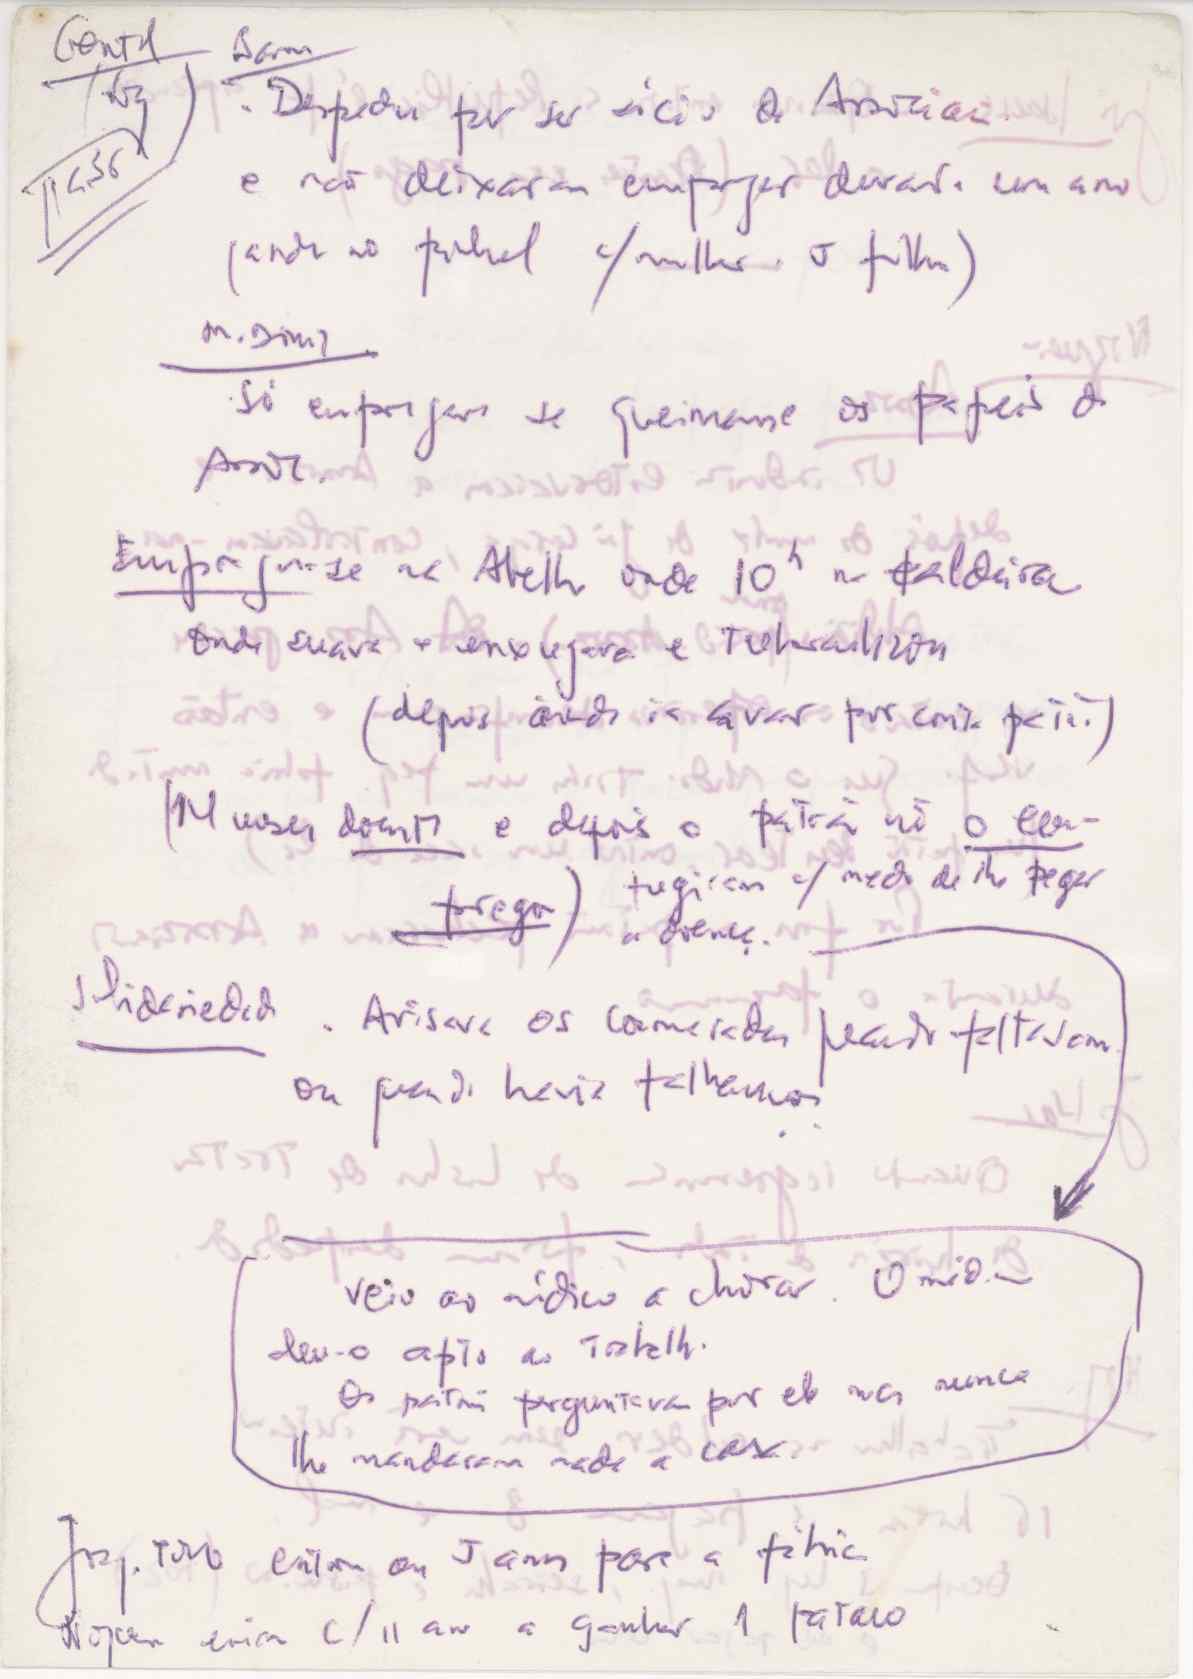 . Despediu por ser sócio da Associaç.
e não deixaram empregar durante um ano
(anda no pinhal c/mulher. 5 filhos)
Só empregava se queimasse os papeis da
Assoc.
Empregou-se na Abelh onde 10h na caldeira
onde suava e enxugava e tuberculizou
(depois ainda ia cavar por conta patrã)
doente e depois o patrão nõ o em-
pregou) fugiram c/ medo de lhe pegar
a doença.
Solidariedad . Avisava os camaradas quando faltavam
ou quando havia
Veio ao médico a chorar. O médico
deu-o apto ao Trabalh.
Os patrões perguntavam por ele mas nunca
lhe mandaram nada a casa.
entrou 5 anos para a fábrica
c/ 11 ano a ganhar 1 pataco